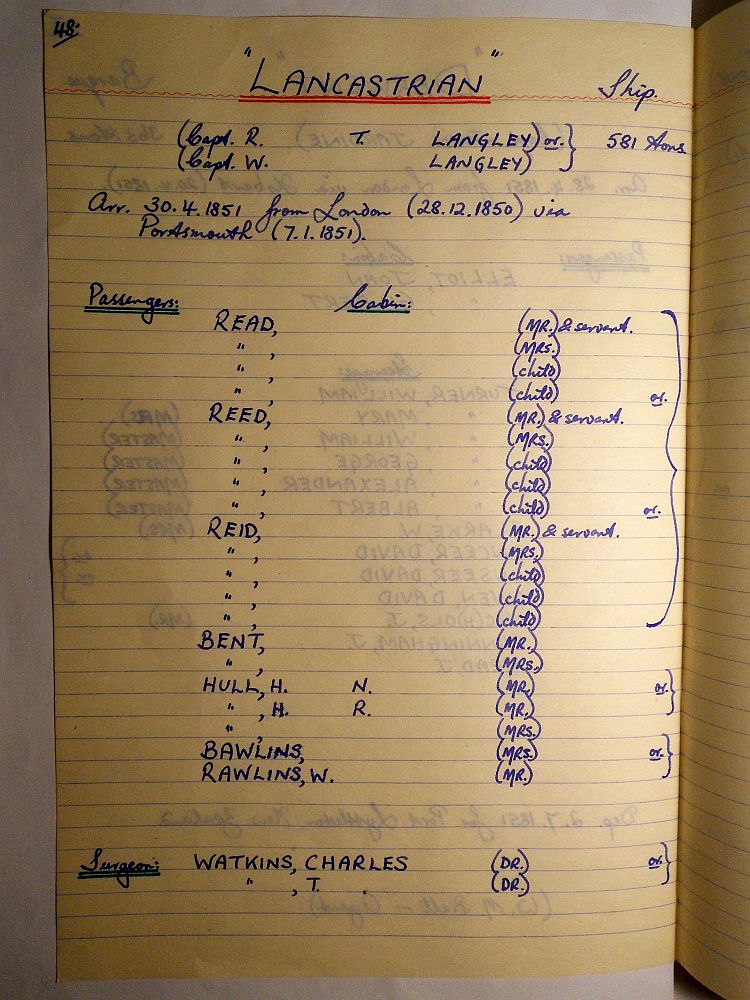 48.
"LANCASTRIAN" Ship.
(Capt. R. T. LANGLEY) or. } 581 tons
(Capt. W. LANGLEY)
Arr. 30.4.1851 from London (28.12.1850) via
Portsmouth (7.1.1851).
Passengers: Cabin:
READ, (MR.) & servant.
" , (MRS.)
" , (child)
" , (child) or.
REED, (MR.) & servant.
" , (MRS.)
" , (child)
" , (child)
" , (child) or.
REID, (MR.) & servant.
" , (MRS.)
" , (child)
" , (child)
" , (child)
BENT, (MR.)
" , (MRS.)
HULL, H. N. (MR.) or. }
" , H. R. (MR.)
" , (MRS.)
BAWLINS, (MRS.) or. }
RAWLINS, W. (MR.)
Surgeon: WATKINS, CHARLES (DR.) or. }
" , T. (DR.)